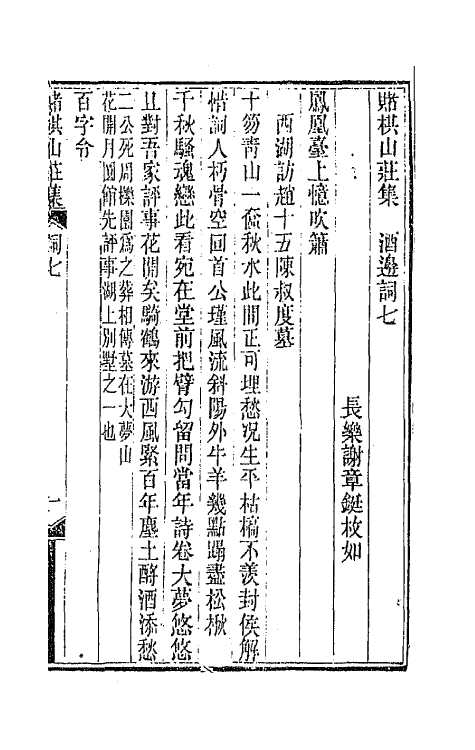 賭棋山莊集　酒邊詞七
長樂謝章鋌枚如
鳳凰臺上憶吹簫
西湖訪趙十五陳叔度墓
十笏靑山一奩秋水此間正可埋愁況生平枯槁不羨封侯解
惜詞人朽骨空回首公瑾風流斜陽外牛羊幾點蹋盡松楸
千秋騷魂戀此看宛在堂前把臂勾留問當年詩卷大夢悠悠
且對吾家評事花開矣騎鶴來游西風緊百年塵土酹酒添愁
二公死周櫟園爲之葬相傳墓在大夢山
花開月圓館先評事湖上別墅之一也
百字令
賭棋山莊集　詞七　一